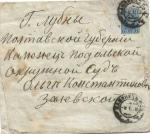 Г. Лубны
Полтавской Губернiи
Каменецъ Подольскiй
Окружной Судъ
Ольгѣ Константиновнѣ
Заевской